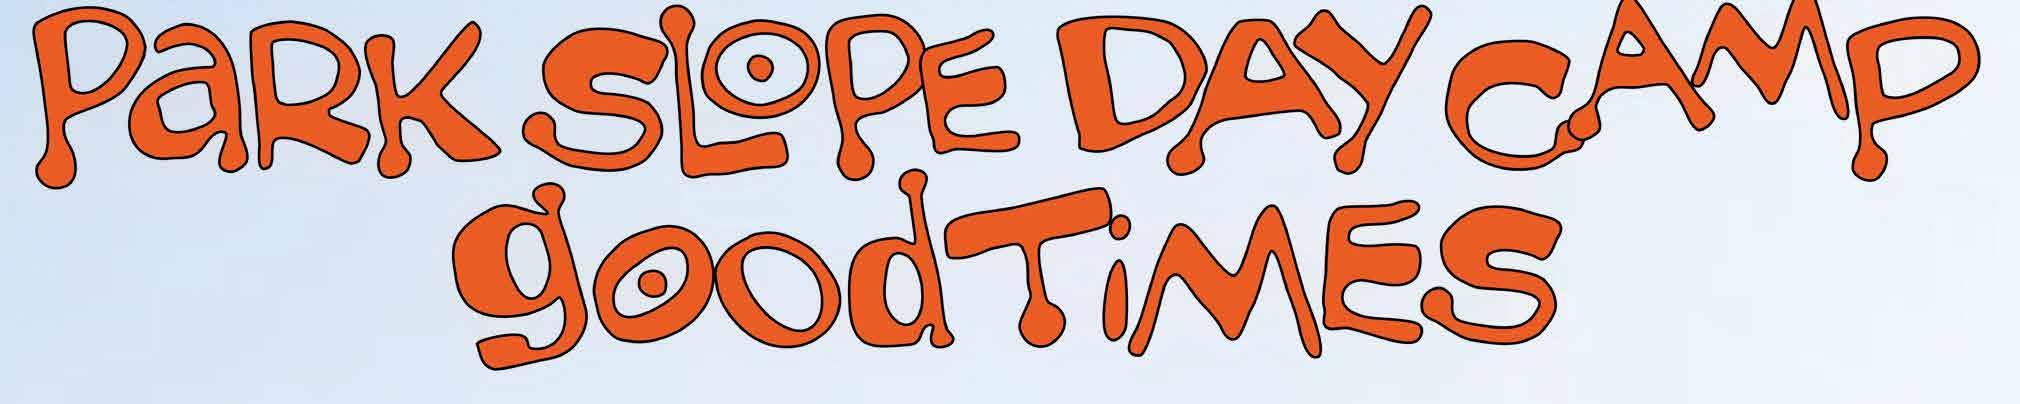 PaRK SLOPE DAY CAMP
goodTiMES